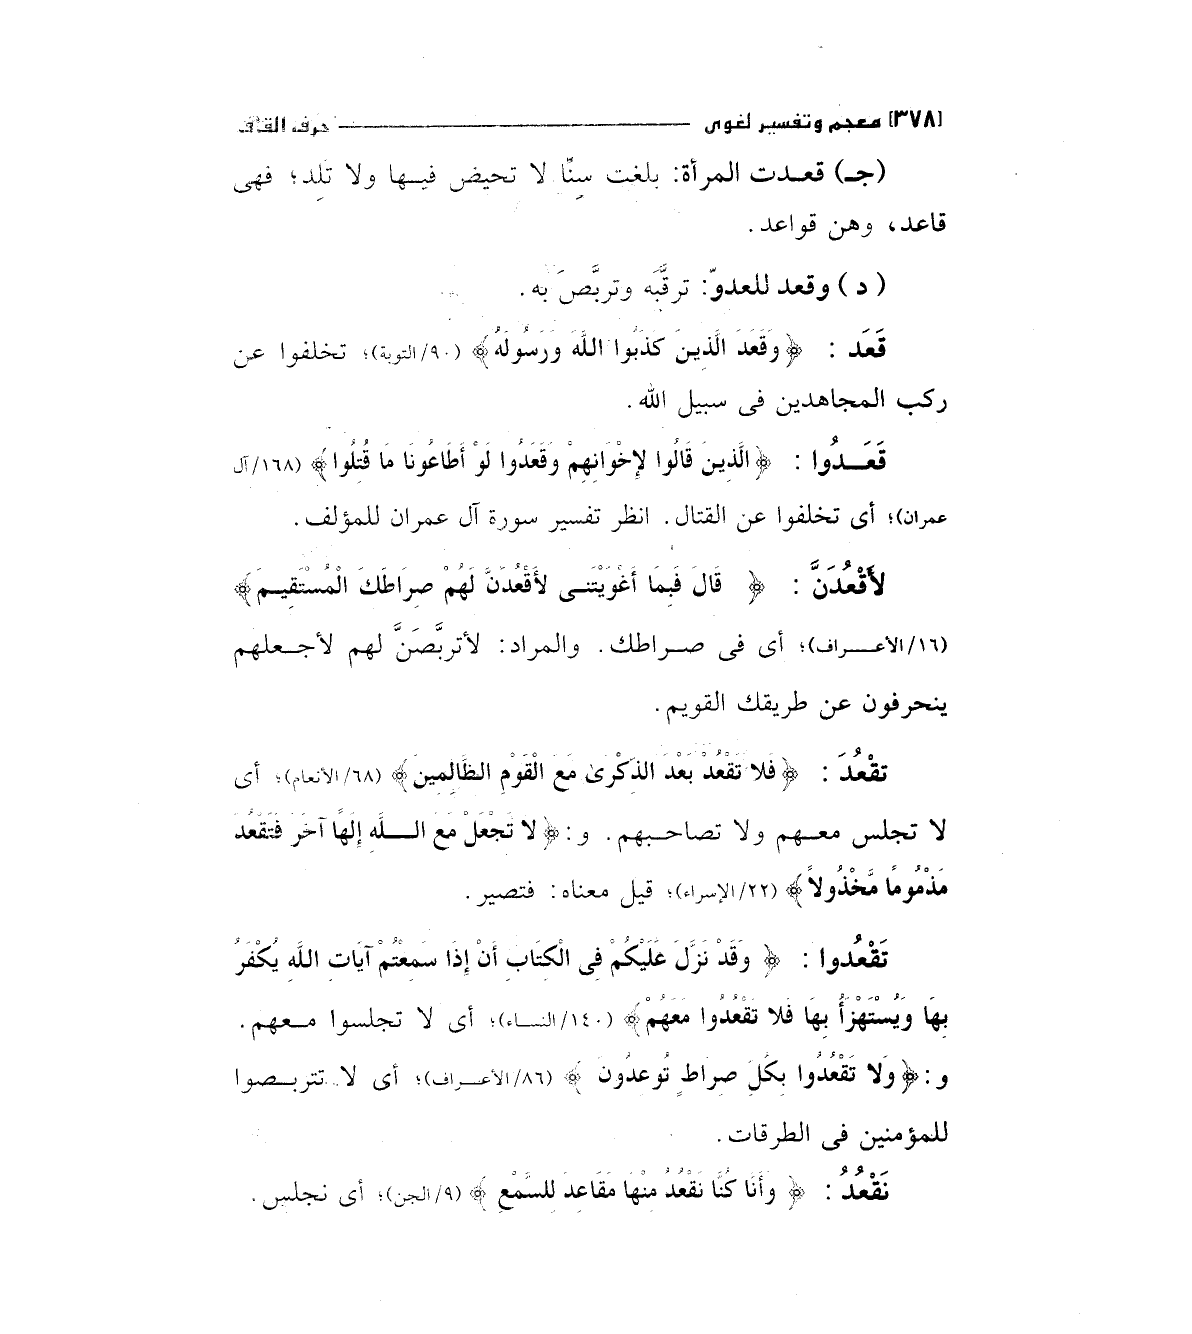 [٣٧٨] معجم وتفسير لغوى ـــــــ حرف القاف
(جـ) قعدت المرأة: بلغت سِنًّا لا تحيض فيها ولا تلد؛ فهى
قاعد، وهن قواعد.
(د) وقعد للعدوّ: ترقَّبَه وتربَّصَ به.
قَعَد : ﴿وَقَعَدَ الَّذِينَ كَذَبُوا اللَّهَ وَرَسُولَهُ﴾ (٩٠/التوبة)؛ تخلفوا عن
ركب المجاهدين فى سبيل الله.
قَعَدُوا : ﴿الَّذِينَ قَالُوا لِإِخْوَانِهِمْ وَقَعَدُوا لَوْ أَطَاعُونَا مَا قُتِلُوا﴾ (١٦٨/آل
عمران)؛ أى تخلفوا عن القتال. انظر تفسير سورة آل عمران للمؤلف.
لأَقْعُدَنَّ : ﴿ قَالَ فَبِمَا أَغْوَيْتَنِى لأَقْعُدَنَّ لَهُمْ صِرَاطَكَ الْمُسْتَقِيمَ﴾
(١٦/الأعراف)؛ أى فى صراطك. والمراد: لأتربَّصَنَّ لهم لأجعلهم
ينحرفون عن طريقك القويم.
تقْعُدَ : ﴿فَلا تَقْعُدْ بَعْدَ الذِّكْرَىٰ مَعَ الْقَوْمِ الظَّالِمِينَ﴾ (٦٨/الأنعام)؛ أى
لا تجلس معهم ولا تصاحبهم. و:﴿لا تَجْعَلْ مَعَ اللَّهِ إِلَهًا آخَرَ فَتَقْعُدَ
مَذْمُومًا مَّخْذُولاً﴾ (٢٢/الإسراء)؛ قيل معناه: فتصير.
تَقْعُدوا : ﴿ وَقَدْ نَزَّلَ عَلَيْكُمْ فِى الْكِتَابِ أَنْ إِذَا سَمِعْتُمْ آيَاتِ اللَّهِ يُكْفَرُ
بِهَا وَيُسْتَهْزَأُ بِهَا فَلا تَقْعُدُوا مَعَهُمْ﴾ (١٤٠/النساء)؛ أى لا تجلسوا معهم.
و:﴿وَلا تَقْعُدُوا بِكُلِّ صِرَاطٍ تُوعِدُونَ ﴾ (٨٦/الأعراف)؛ أى لا تتربصوا
للمؤمنين فى الطرقات.
نَقْعُدُ : ﴿ وَأَنَّا كُنَّا نَقْعُدُ مِنْهَا مَقَاعِدَ لِلسَّمْعِ ﴾ (٩/الجن)؛ أى نجلس.